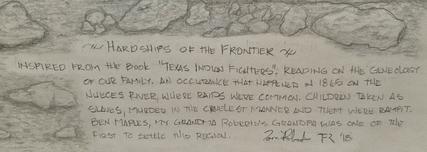 ~ HARDSHIPS OF THE FRONTIER ~
INSPIRED FROM THE BOOK "TEXAS INDIAN FIGHTERS". READING ON THE GENEOLOGY
OF OUR FAMILY. AN OCCURANCE THAT HAPPENED IN 1865 ON THE
NUECES RIVER, WHERE RAIDS WERE COMMON. CHILDREN TAKEN AS
SLAVES, MURDER IN THE CRUELEST MANNER AND THEFT WERE RAMPIT.
BEN MAPLES, MY GRANDMA ROBERTINS GRANDPA WAS ONE OF THE
FIRST TO SETTLE THIS REGION. '18